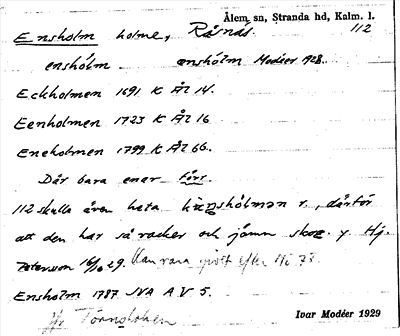 Ålem sn, Stranda hd, Kalm. l.
Ensholm holme, Råsnäs. 112
ensholm ensholm Modéer 1928.
Eckholmen 1691 K ÅZ 14.
Eenholmen 1723 K ÅZ 16
Eneholmen 1799 K ÅZ 66.
Där bara enar förr.
112 skulle även heta kungsholmen r., därför
att den har så vacker och jämn skog. y Hj.
Peterson 16/10 29. Kan vara givet efter
Ensholm 1787 JVA A V 5.
jfr
Ivar Modéer 1929